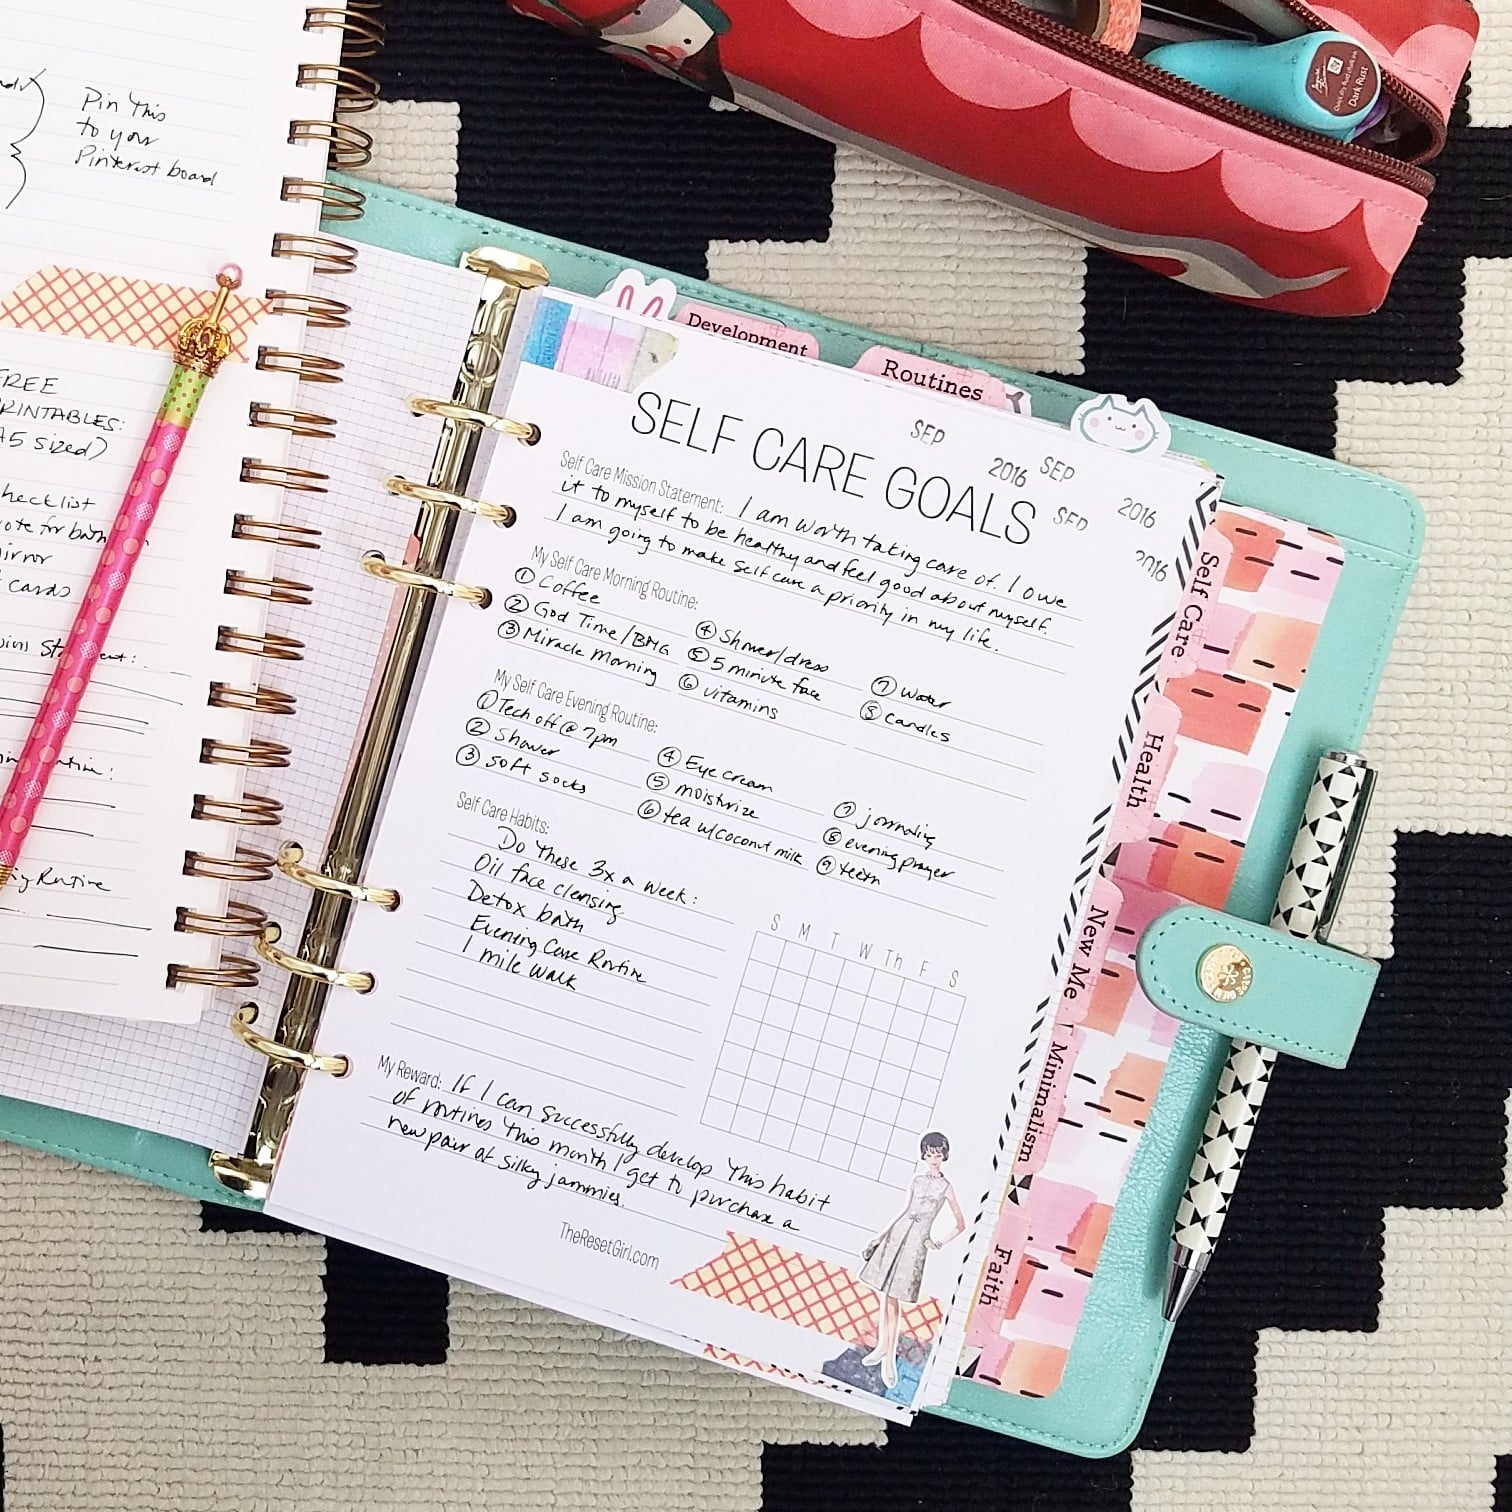 Pin This
to your
Pinterest board
FREE
PRINTABLES:
A5 sized)
checklist
cards
Development
Routines
SELF CARE GOALS
SEP
2016
SEP
2016
SEP
2016
Self Care Mission Statement: I am worth taking care of. I owe
it to myself to be healthy and feel good about myself.
I am going to make self care a priority in my life.
My Self Care Morning Routine:
① Coffee
② God Time/BMG
③ Miracle Morning
④ Shower/dress
⑤ 5 minute face
⑥ vitamins
⑦ Water
⑧ Candles
My Self Care Evening Routine:
① Tech off @ 7pm
② Shower
③ Soft socks
④ Eye cream
⑤ moisturize
⑥ tea w/coconut milk
⑦ journaling
⑧ evening prayer
⑨ teeth
Self Care Habits:
Do These 3x a week:
Oil face cleansing
Detox bath
Evening Care Routine
1 mile walk
S M T W Th F S
My Reward: If I can successfully develop This habit
of routines This month I get to purchase a
new pair of silky jammies.
TheResetGirl.com
Self Care
Health
New Me
Minimalism
Faith
Dark Rust